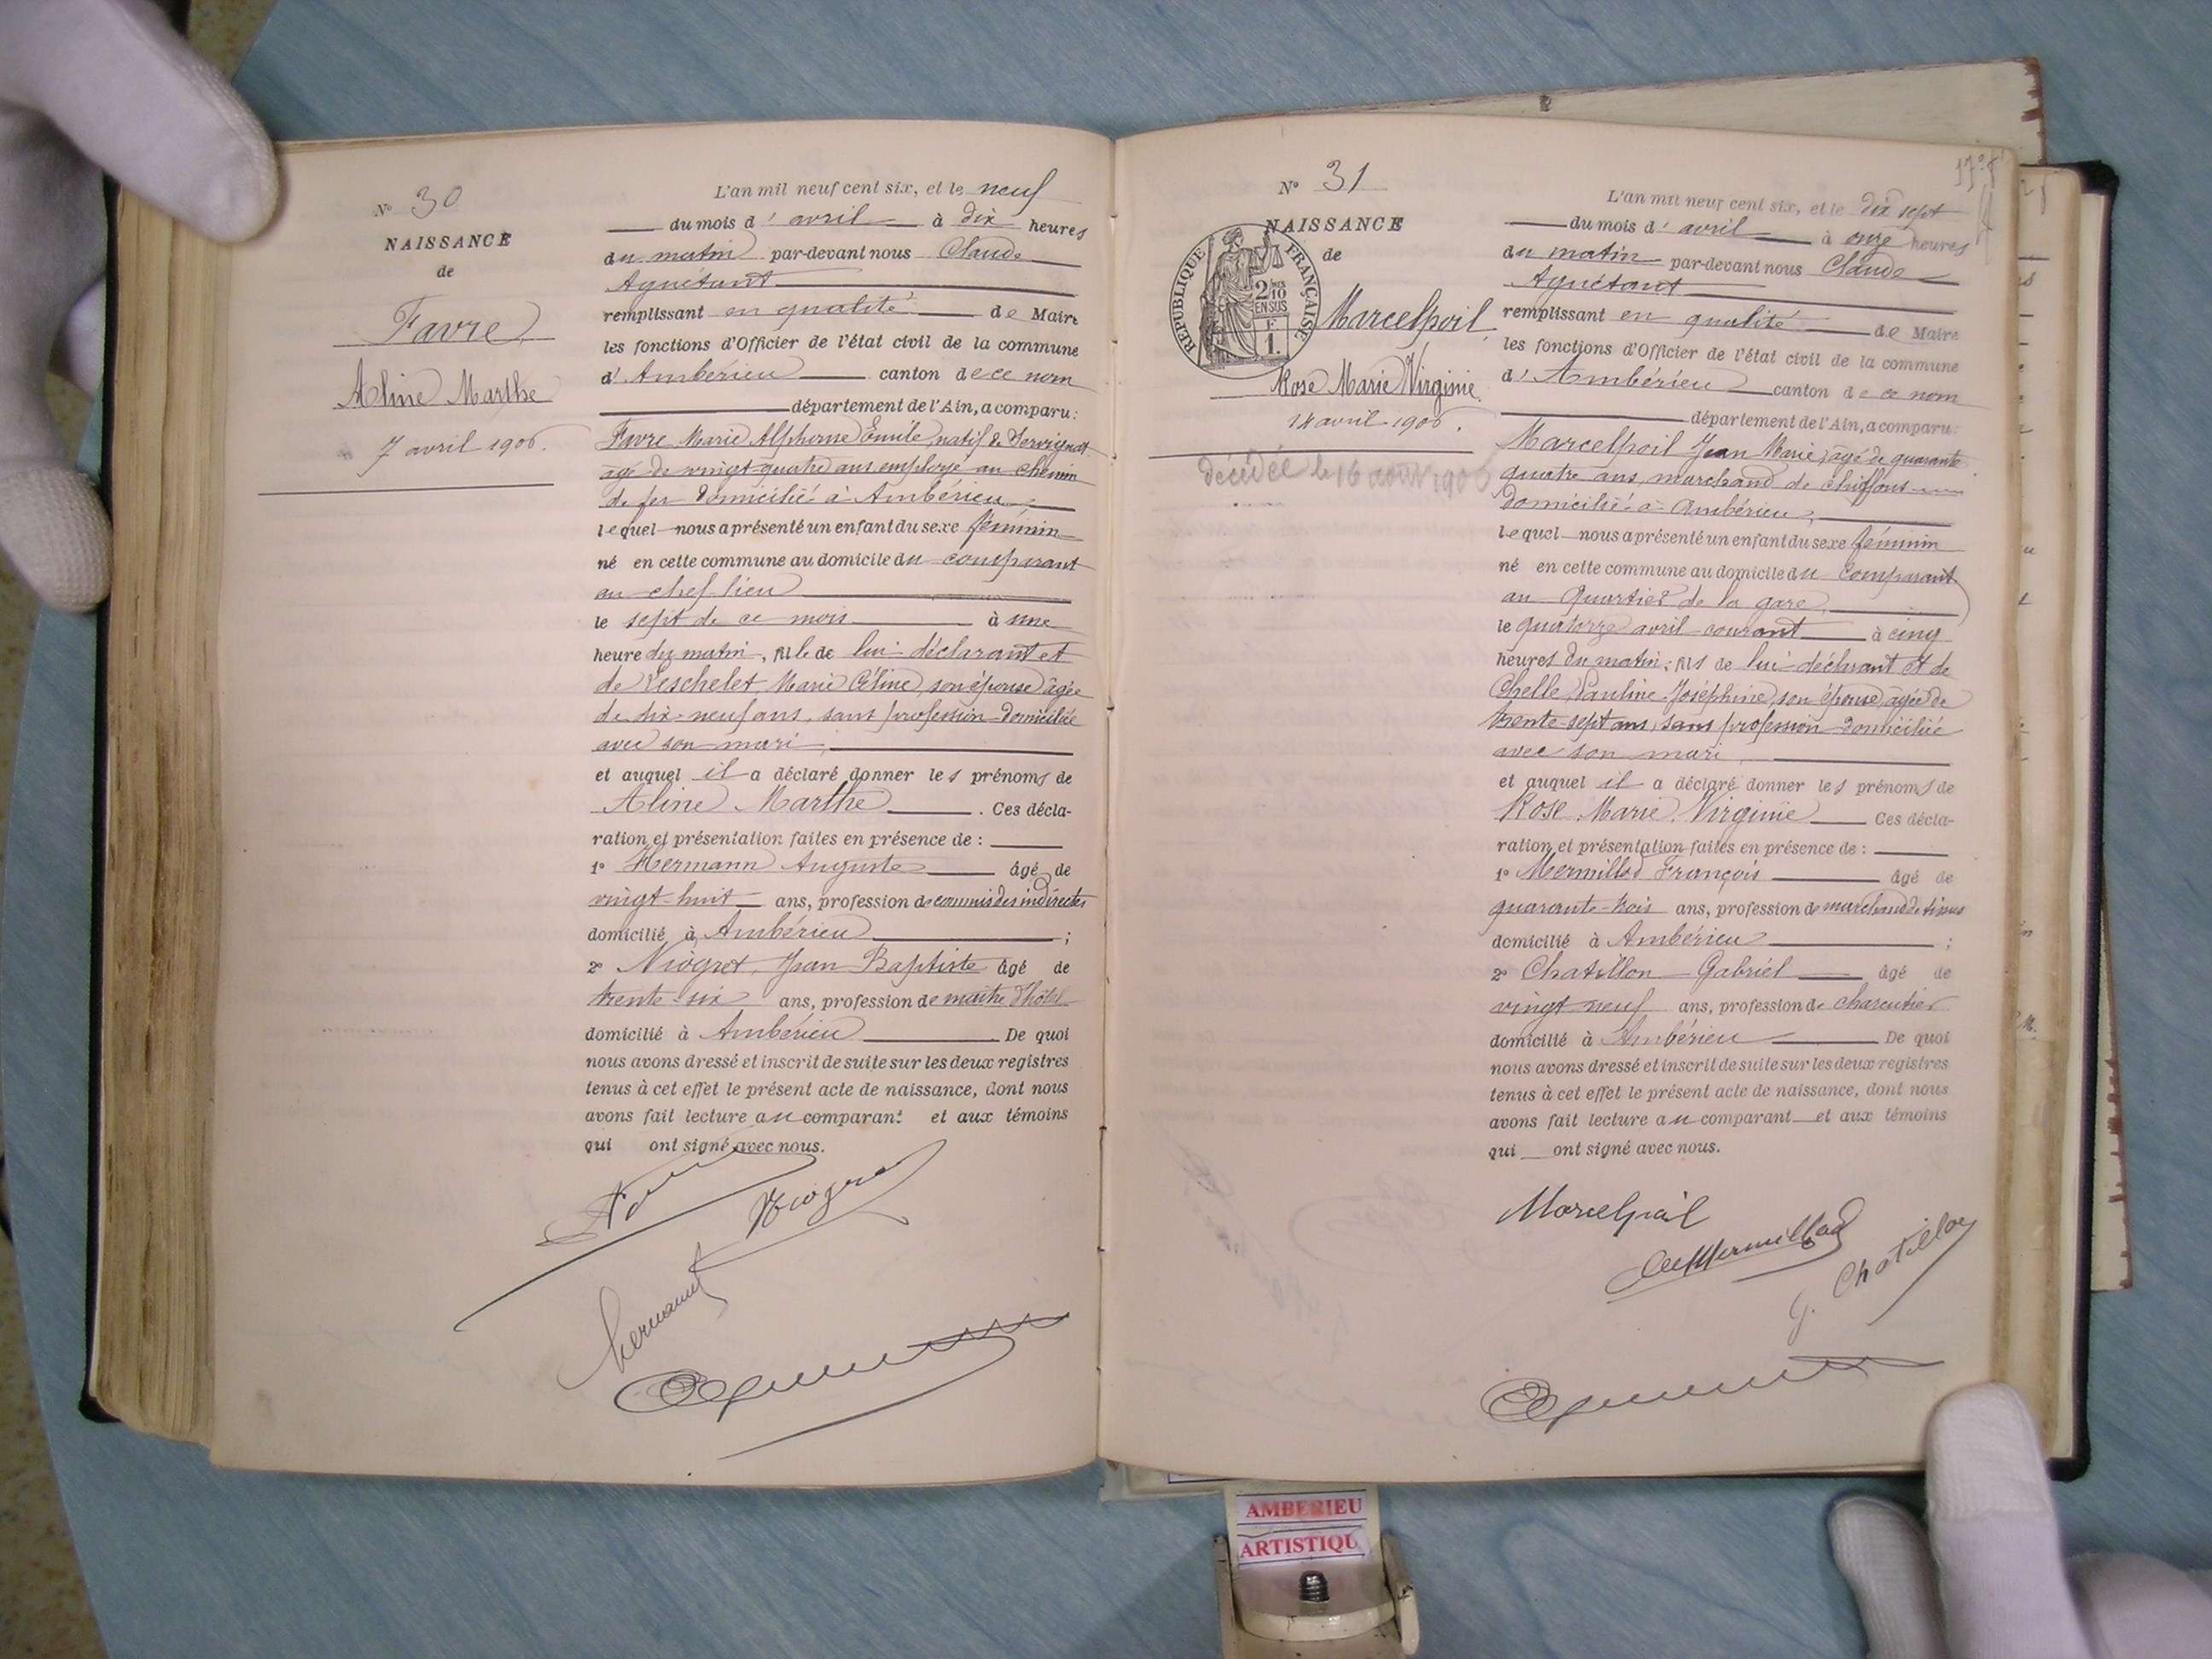 N° 30
NAISSANCE
de
Favre
Aline Marthe
7 avril 1906.
L'an mil neuf cent six, et le neuf
du mois d' avril à dix heures
du matin par-devant nous Claude
Aguétant
remplissant en qualité de Maire
les fonctions d'Officier de l'état civil de la commune
d' Ambérieu canton de ce nom
département de l'Ain, a comparu :
Favre Marie Alphonse Émile, natif de Servignat
âgé de vingt quatre ans employé au chemin
de fer domicilié à Ambérieu,
lequel nous a présenté un enfant du sexe féminin
né en cette commune au domicile du comparant
au chef-lieu
le sept de ce mois à une
heure du matin, fille de lui déclarant et
de Marie Céline, son épouse âgée
de dix-neuf ans, sans profession domiciliée
avec son mari,
et auquel il a déclaré donner les prénoms de
Aline Marthe. Ces décla-
ration et présentation faites en présence de :
1° Hermann Auguste âgé de
vingt-huit ans, profession de commis des indirectes
domicilié à Ambérieu ;
2° Niogret, Jean Baptiste âgé de
trente-six ans, profession de maître d'hôtel
domicilié à Ambérieu De quoi
nous avons dressé et inscrit de suite sur les deux registres
tenus à cet effet le présent acte de naissance, dont nous
avons fait lecture au comparant et aux témoins
qui ont signé avec nous.
Niogret
Hermann
N° 31
NAISSANCE
de
REPUBLIQUE FRANÇAISE
2/10
EN SUS
F
1.
Marcelpoil
Rose Marie Virginie
14 avril 1906.
décédée le 16 août 1906
L'an mil neuf cent six, et le dix sept
du mois d' avril à onze heures
du matin par-devant nous Claude
Aguétant
remplissant en qualité de Maire
les fonctions d'Officier de l'état civil de la commune
d' Ambérieu canton de ce nom
département de l'Ain, a comparu :
Marcelpoil Jean Marie, âgé de quarante
quatre ans, marchand de chiffons
domicilié à Ambérieu,
lequel nous a présenté un enfant du sexe féminin
né en cette commune au domicile du comparant
au Quartier de la gare,
le quatorze avril courant à cinq
heures du matin, fils de lui déclarant et de
Chelle, Pauline Joséphine, son épouse, âgée de
trente-sept ans, sans profession domiciliée
avec son mari,
et auquel il a déclaré donner les prénoms de
Rose Marie Virginie Ces décla-
ration et présentation faites en présence de :
1° Mermillod François âgé de
quarante-trois ans, profession de marchand de tissus
domicilié à Ambérieu ;
2° Chatillon Gabriel âgé de
vingt neuf ans, profession de charcutier
domicilié à Ambérieu De quoi
nous avons dressé et inscrit de suite sur les deux registres
tenus à cet effet le présent acte de naissance, dont nous
avons fait lecture au comparant et aux témoins
qui ont signé avec nous.
Marcelpoil
Mermillod
G. Chatillon
AMBERIEU
ARTISTIQU